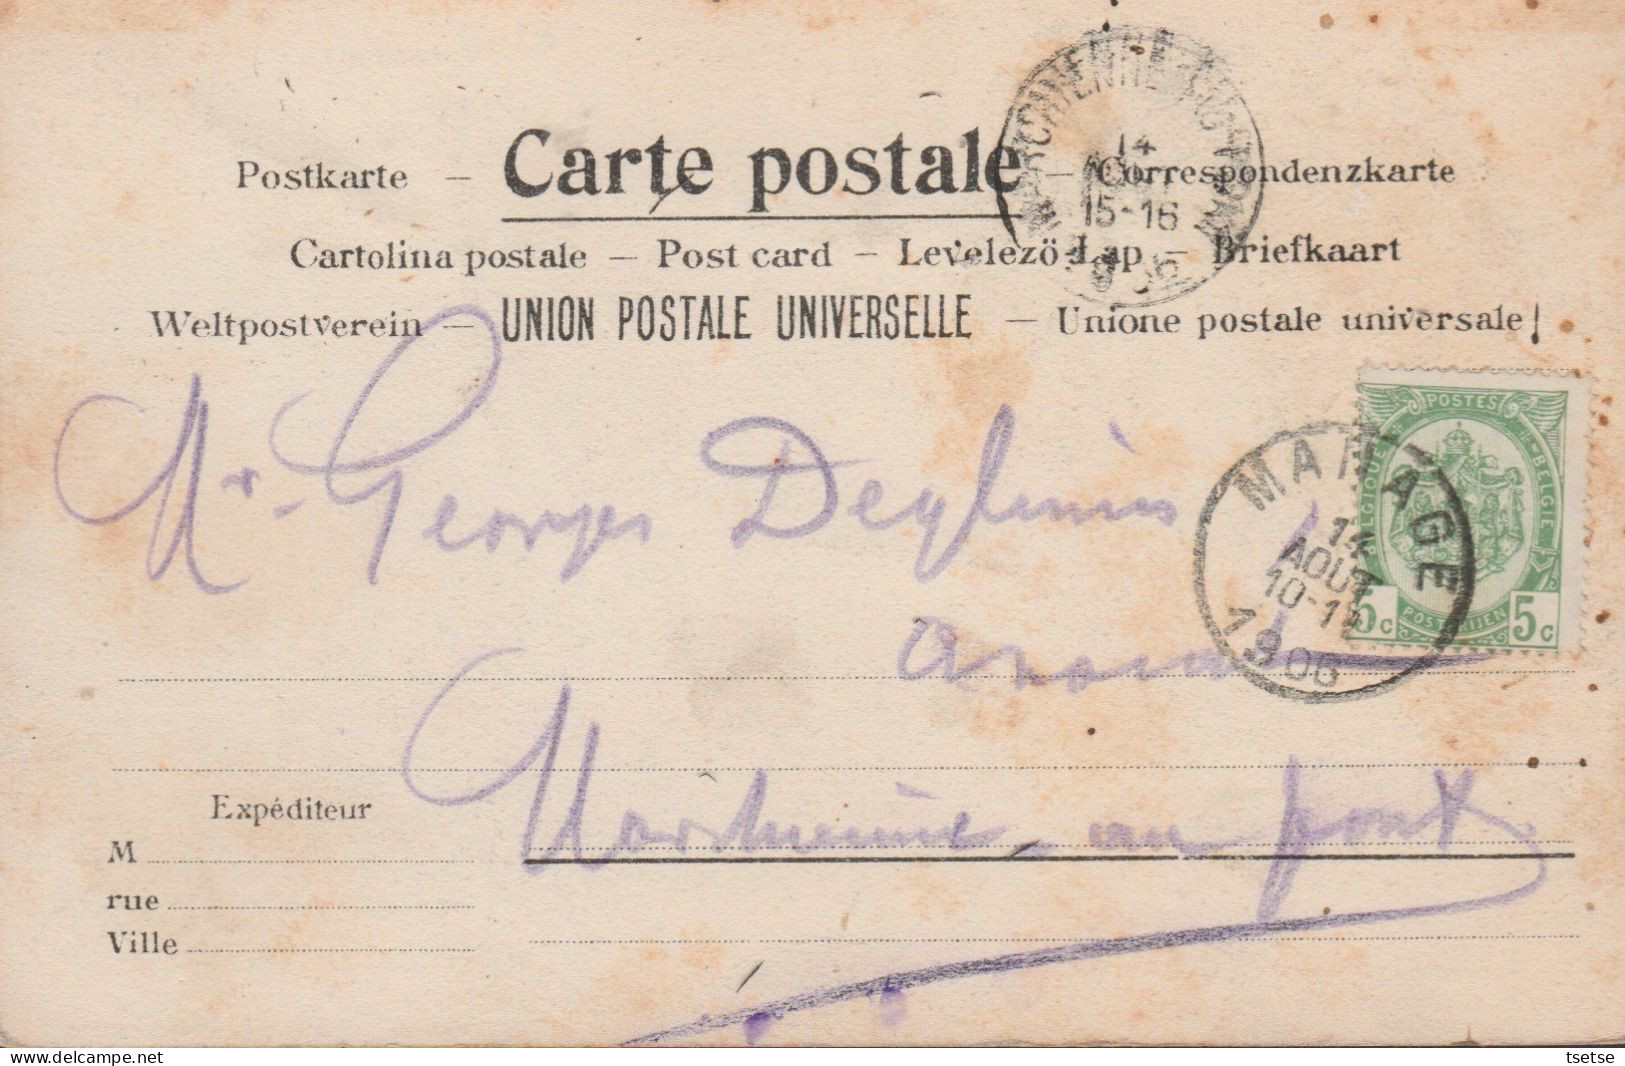 Postkarte – Carte postale – Correspondenzkarte
Cartolina postale – Post card – Levelező-Lap – Briefkaart
Weltpostverein – UNION POSTALE UNIVERSELLE – Unione postale universale
14
15-16
POSTES
BELGIQUE BELGIE
5c POSTERIJEN 5c
MANAGE
14
AOUT
1906
Mr Georges
au pont
Expéditeur
M
rue
Ville
delcampe.net
tsetse